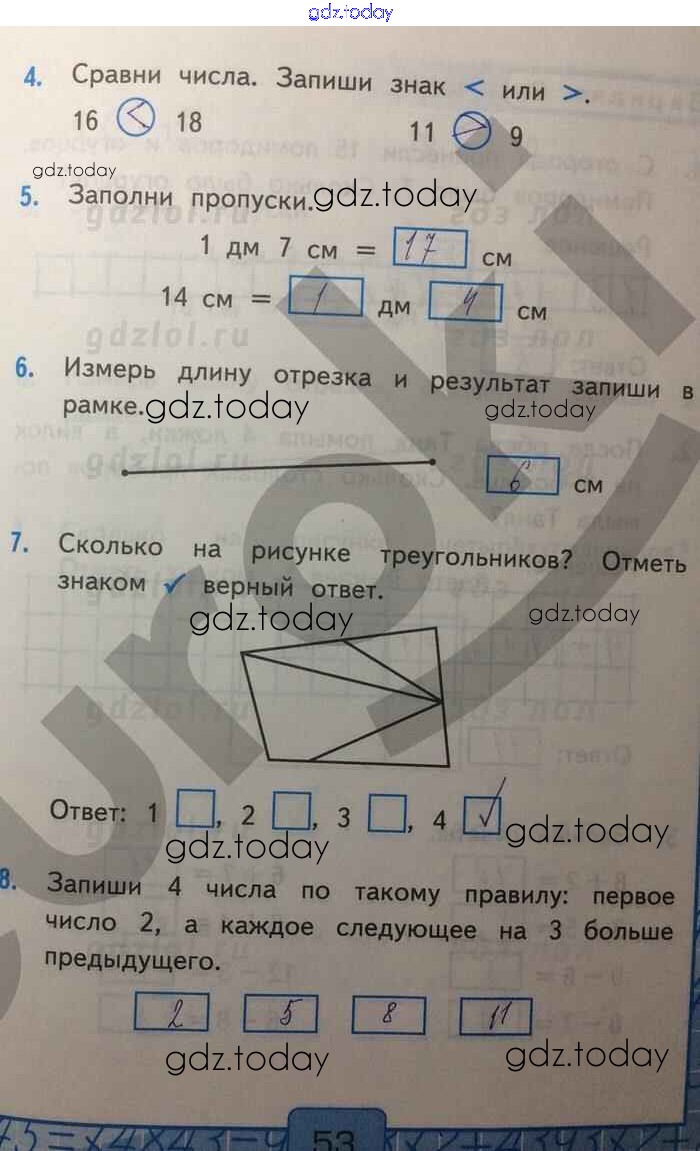 gdz.today
4. Сравни числа. Запиши знак < или >.
16 < 18 11 > 9
gdz.today
5. Заполни пропуски. gdz.today
gdzlol.ru
1 дм 7 см = 17 см
14 см = 1 дм 4 см
gdzlol.ru
6. Измерь длину отрезка и результат запиши в
рамке. gdz.today gdz.today
gdzlol.ru
6 см
7. Сколько на рисунке треугольников? Отметь
знаком ✓ верный ответ.
gdz.today gdz.today
gdzlol.ru
Ответ: 1 , 2 , 3 , 4 ✓
gdz.today gdz.today
8. Запиши 4 числа по такому правилу: первое
число 2, а каждое следующее на 3 больше
предыдущего.
2 5 8 11
gdz.today gdz.today
53